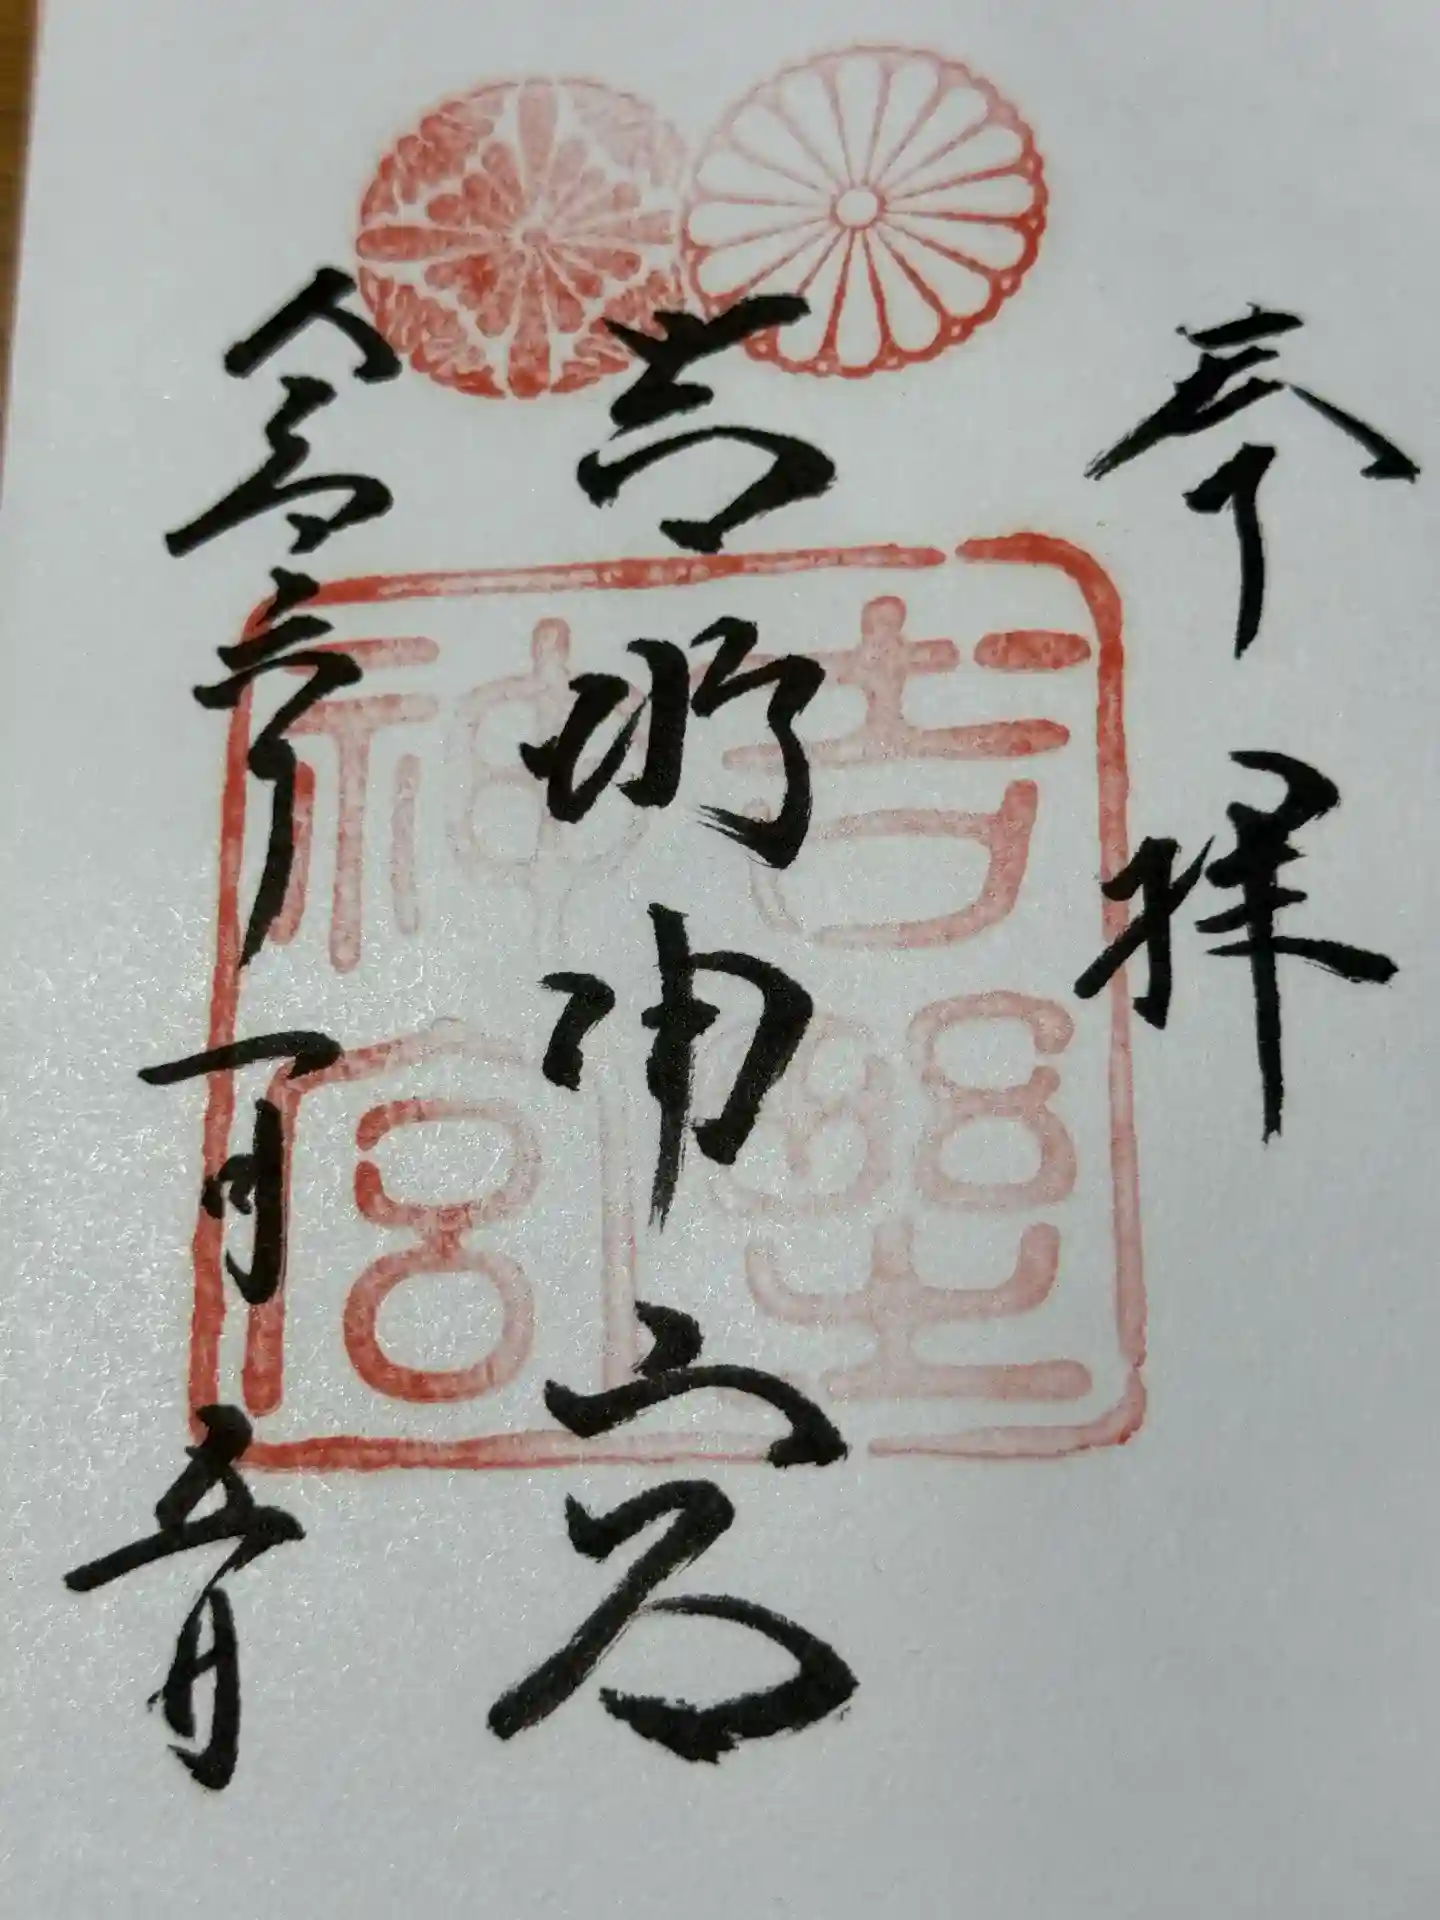 奉拝
吉野神宮
令和六年一月五日
吉野神宮